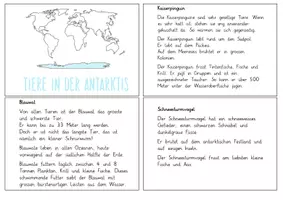 TIERE IN DER ANTARKTIS
Kaiserpinguin
Die Kaiserpinguine sind sehr gesellige Tiere. Wenn
es sehr kalt ist, stehen sie eng aneinander-
gekuschelt da. So wärmen sie sich gegenseitig.
Der Kaiserpinguin lebt rund um den Südpol.
Er lebt auf dem Packeis.
Auf dem Meereseis brütet er in großen
Kolonien.
Der Kaiserpinguin frisst Tintenfische, Fische und
Krill. Er jagt in Gruppen und ist ein
ausgezeichneter Taucher. So kann er über 500
Meter unter der Wasseroberfläche jagen.
Blauwal
Von allen Tieren ist der Blauwal das größte
und schwerste Tier.
Er kann bis zu 33 Meter lang werden.
Doch er ist nicht das längste Tier, das ist
nämlich ein kleiner Schnurwurm!
Blauwale leben in allen Ozeanen, heute
vorwiegend auf der südlichen Hälfte der Erde.
Blauwale futtern täglich zwischen 4 und 8
Tonnen Plankton, Krill und kleine Fische. Dieses
schwimmende Futter siebt der Blauwal mit
grossen bürstenartigen Leisten aus dem Wasser.
Schneesturmvogel
Der Schneesturmvogel hat ein schneeweisses
Gefieder, einen schwarzen Schnabel und
dunkelgraue Füsse.
Er brütet auf dem antarktischen Festland und
auf wenigen Inseln.
Der Schneesturmvogel frisst am liebsten kleine
Fische und Aas.